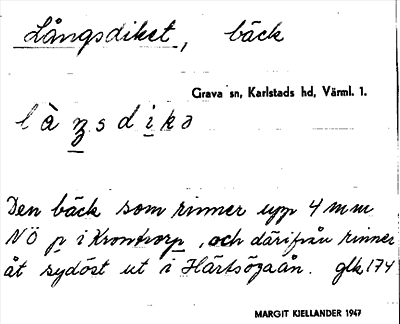 Långsdiket, bäck
Grava sn, Karlstads hd, Värml. 1.
Den bäck som rinner upp 4 mm
NÖ p i Krontorp, och därifrån rinner
åt sydöst ut i Härtsögaån. glk 174
MARGIT KJELLANDER 1947